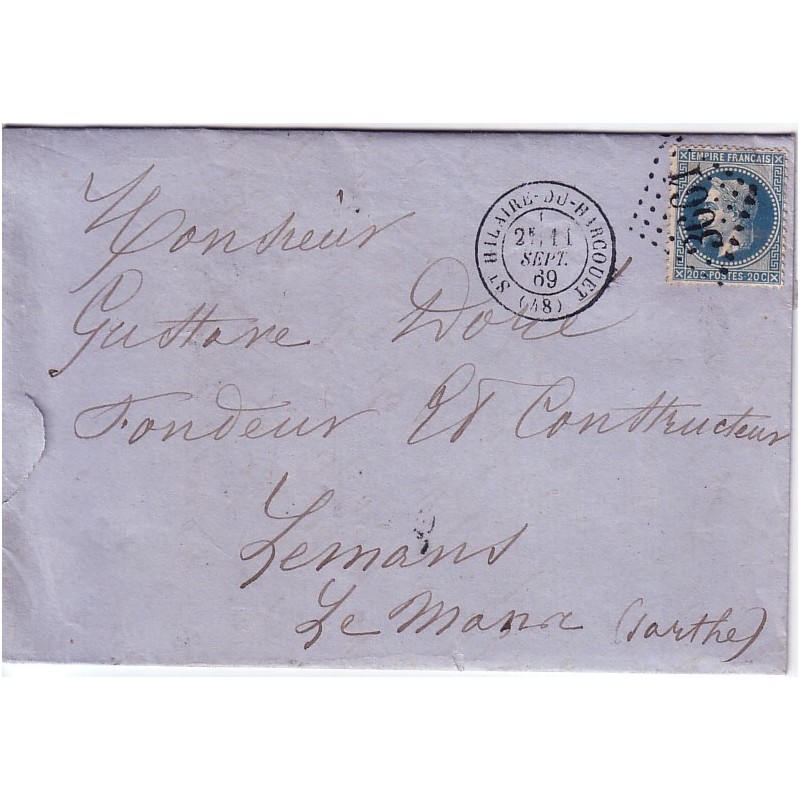 Monsieur
Gustave Doré
Fondeur Et Constructeur
Lemans
Le Mans (Sarthe)
ST HILAIRE-DU-HARCOUET
2E 11
SEPT.
69
(48)
EMPIRE FRANCAIS
20C POSTES 20C